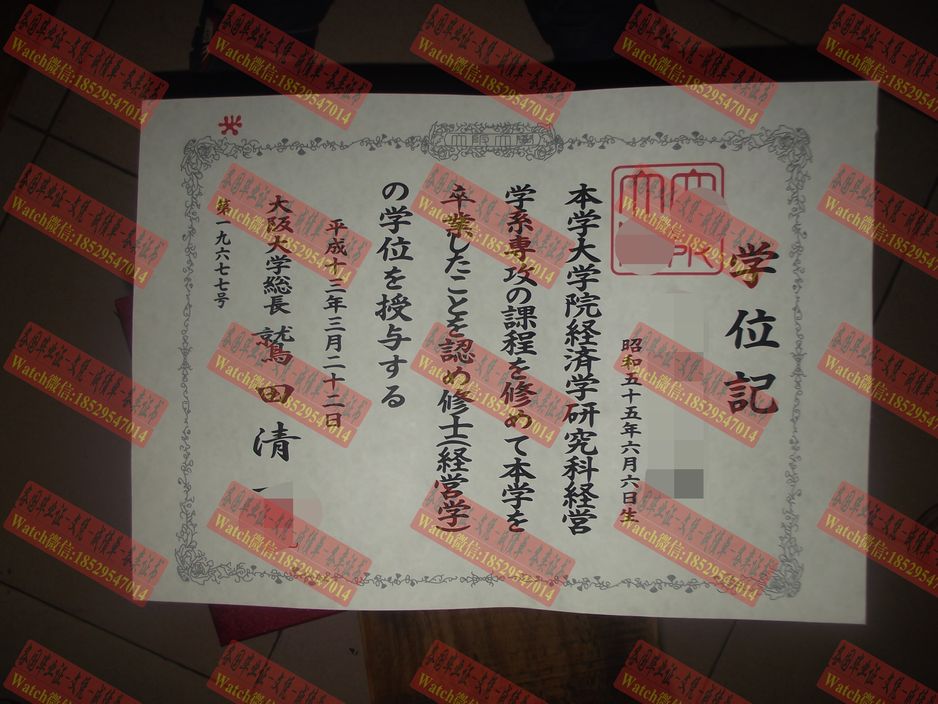 学位記
昭和五十五年六月六日生
本学大学院経済学研究科経営
学系専攻の課程を修めて本学を
卒業したことを認め修士(経営学)
の学位を授与する
平成十三年三月二十二日
大阪大学総長 鷲田清
第一九六七七号
Watch微信:18529547014